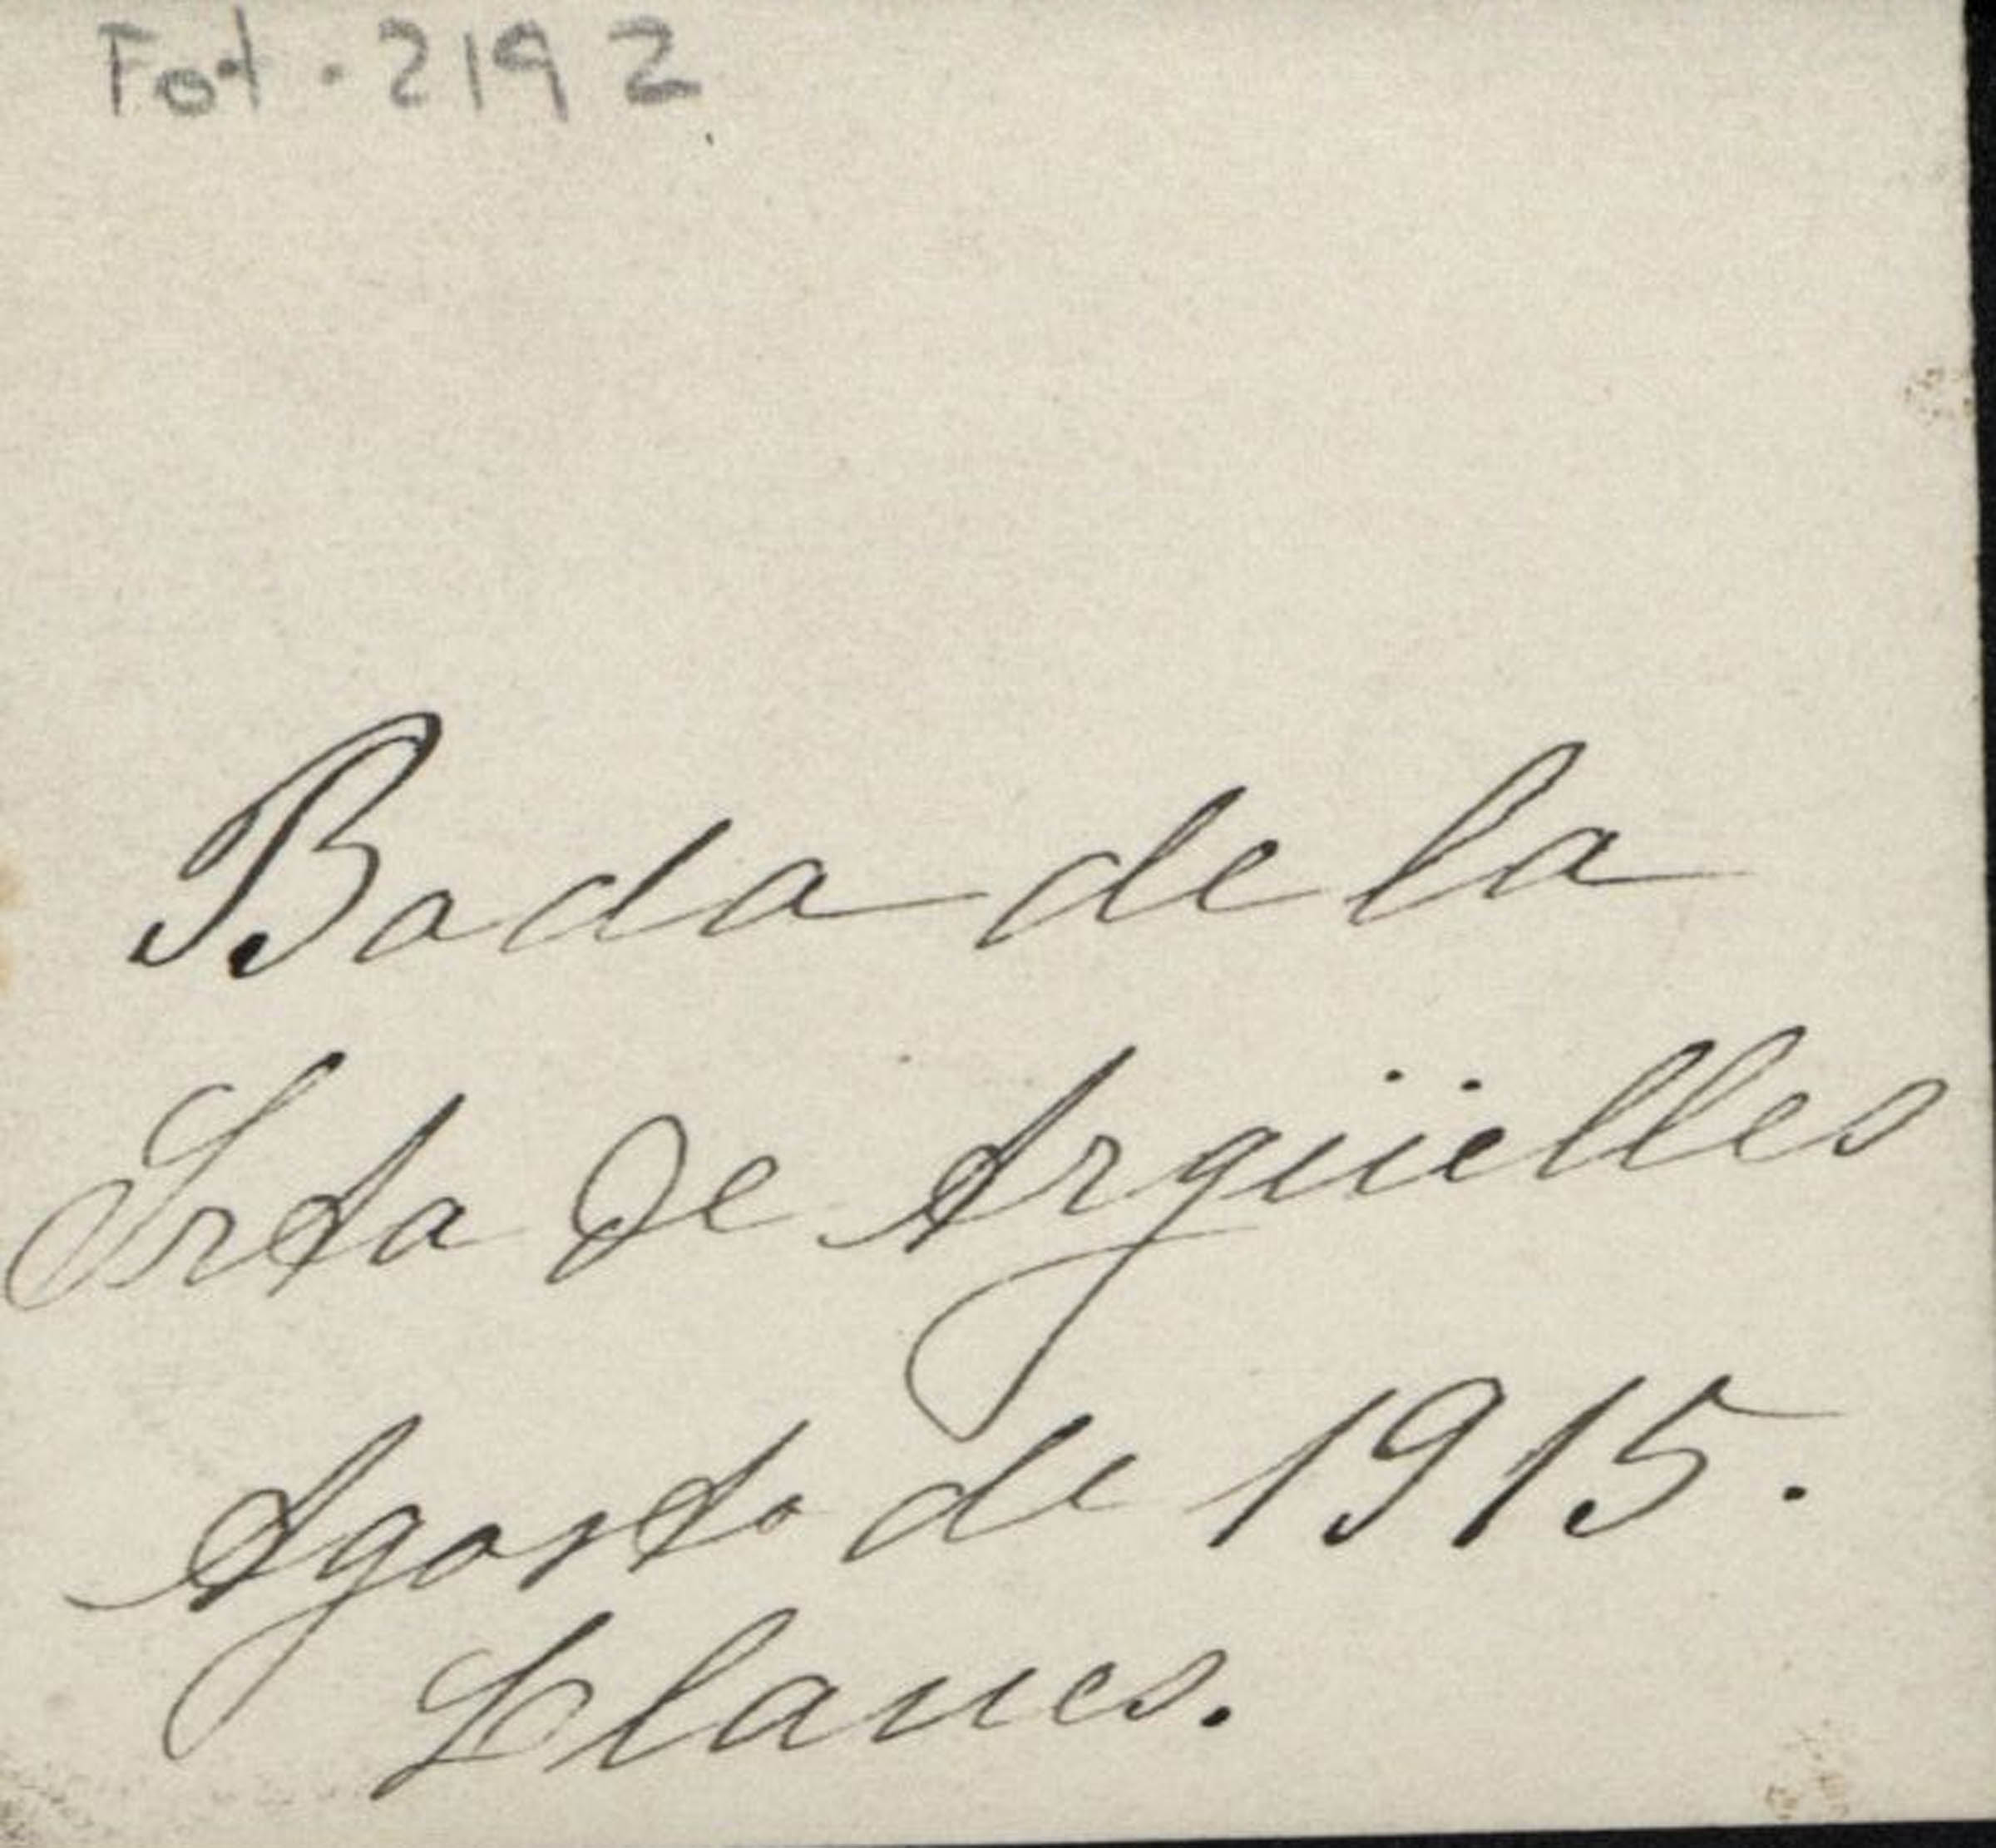 Fot. 2192
Boda de la
Srta de Argüelles
Agosto de 1915.
Llanes.